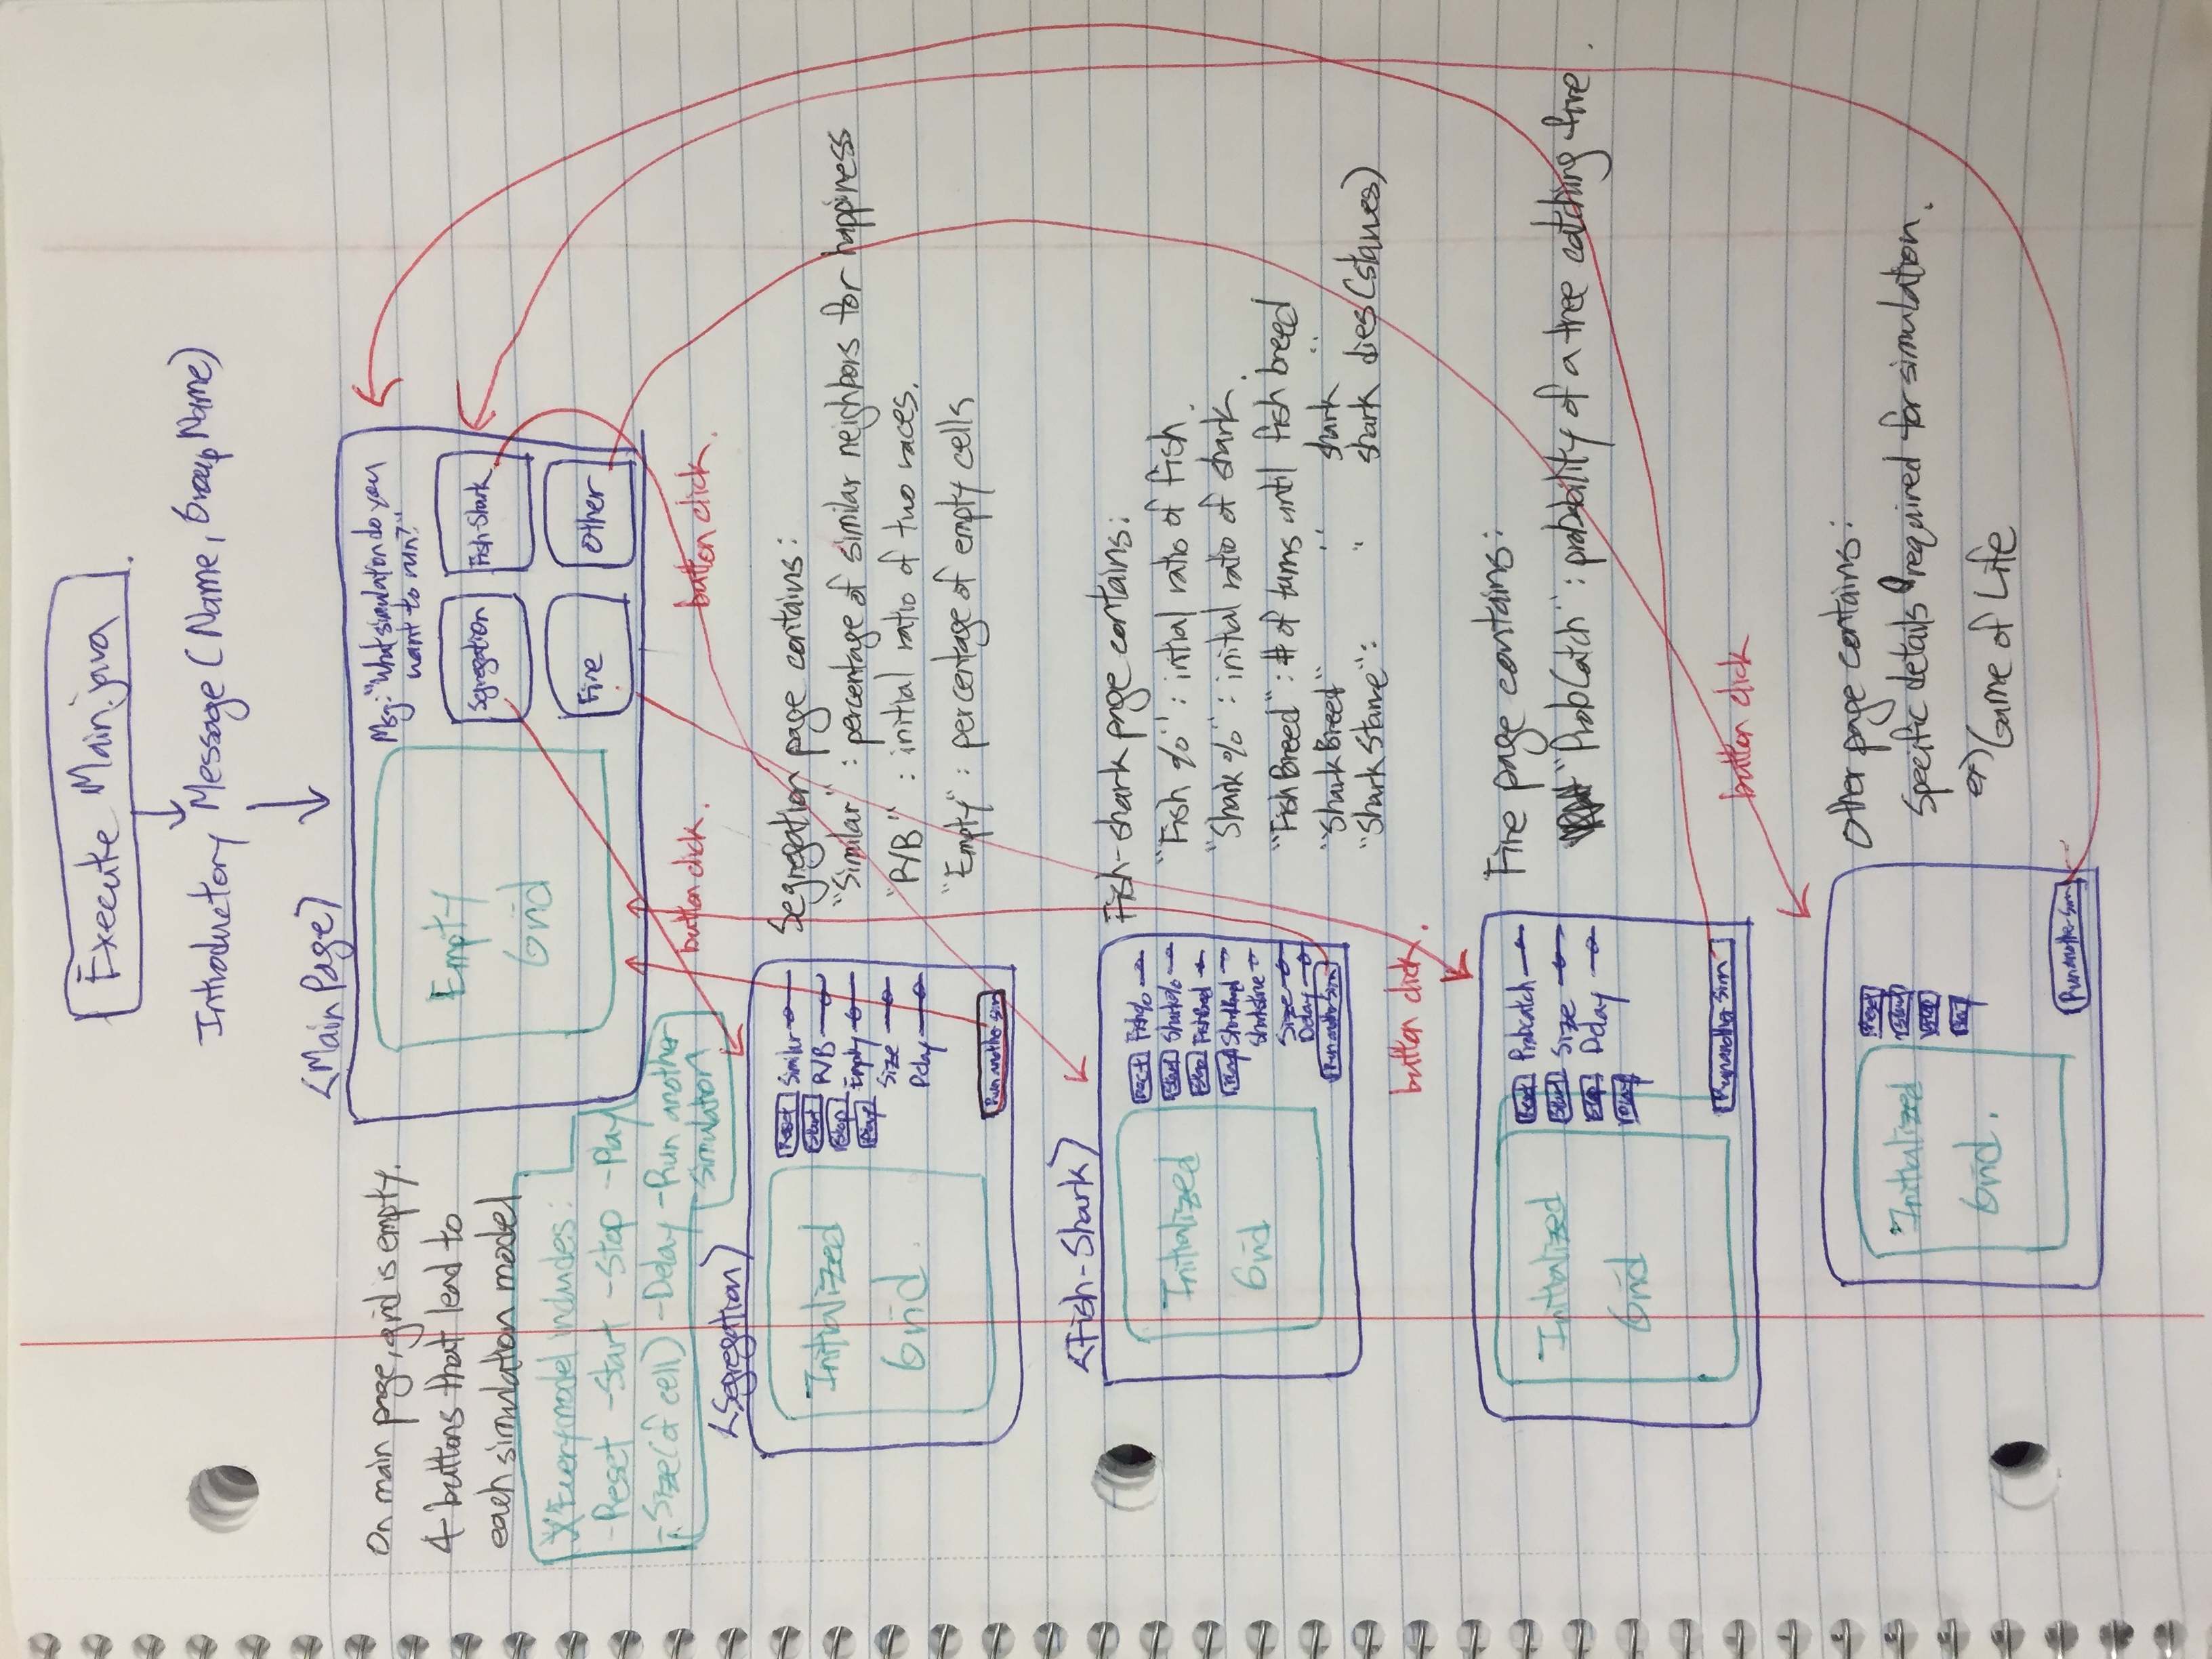 Execute Main.java
Introductory Message (Name, Group Name)
<Main Page>
On main page, grid is empty.
4 buttons that lead to
each simulation model
Empty
Grid
Msg: "What simulation do you
want to run?"
Segregation
Fish-Shark
Fire
Other
Every model includes:
-Reset -Start -Stop -Play
-Size(of cell) -Delay -Run another
simulation
button click.
button click.
<Segregation>
Initialized
Grid.
Reset Similar
Start R/B
Stop Empty
Play
Size
Delay
Run another sim
Segregation page contains:
"Similar" : percentage of similar neighbors for happiness
"R/B" : initial ratio of two races.
"Empty" : percentage of empty cells
<Fish-Shark>
Initialized
Grid
Reset Fish%
Start Shark%
Stop FishBreed
Play SharkBreed
SharkStarve
Size
Delay
Run another sim
Fish-shark page contains:
"Fish %" : intial ratio of fish.
"Shark %" : initial ratio of shark.
"Fish Breed" : # of turns until fish breed
"Shark Breed" " shark "
"Shark Starve": " shark dies (starves)
button click.
Initialized
Grid
Reset Probcatch
Start Size
Stop Delay
Play
Run another sim
Fire page contains:
"ProbCatch" : probability of a tree catching fire.
button click
Initialized
Grid.
Reset
Start
Stop
Play
Run another sim
Other page contains:
Specific details required for simulation.
ex) Game of Life